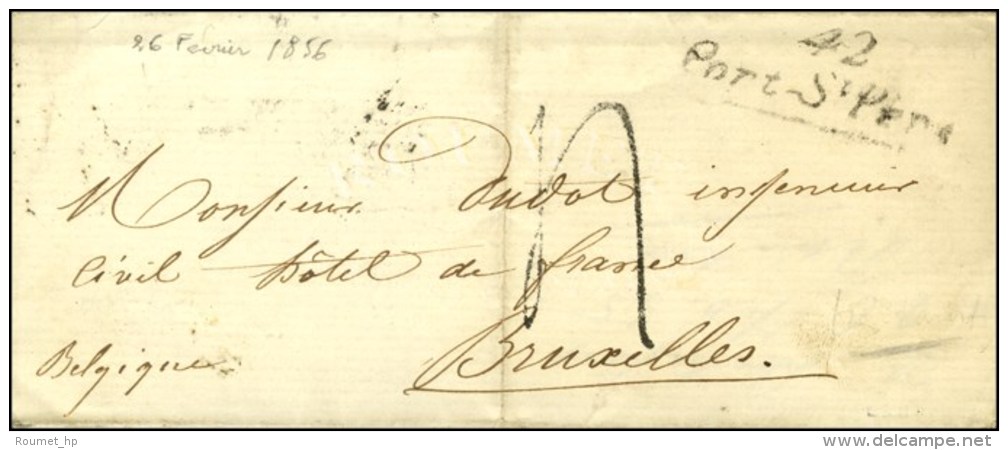 26 Fevrier 1856
42
Port-St Pere
Monsieur Oudot ingenieur
Civil hôtel de france
Bruxelles.
Belgique
Roumet_hp
www.delcampe.net